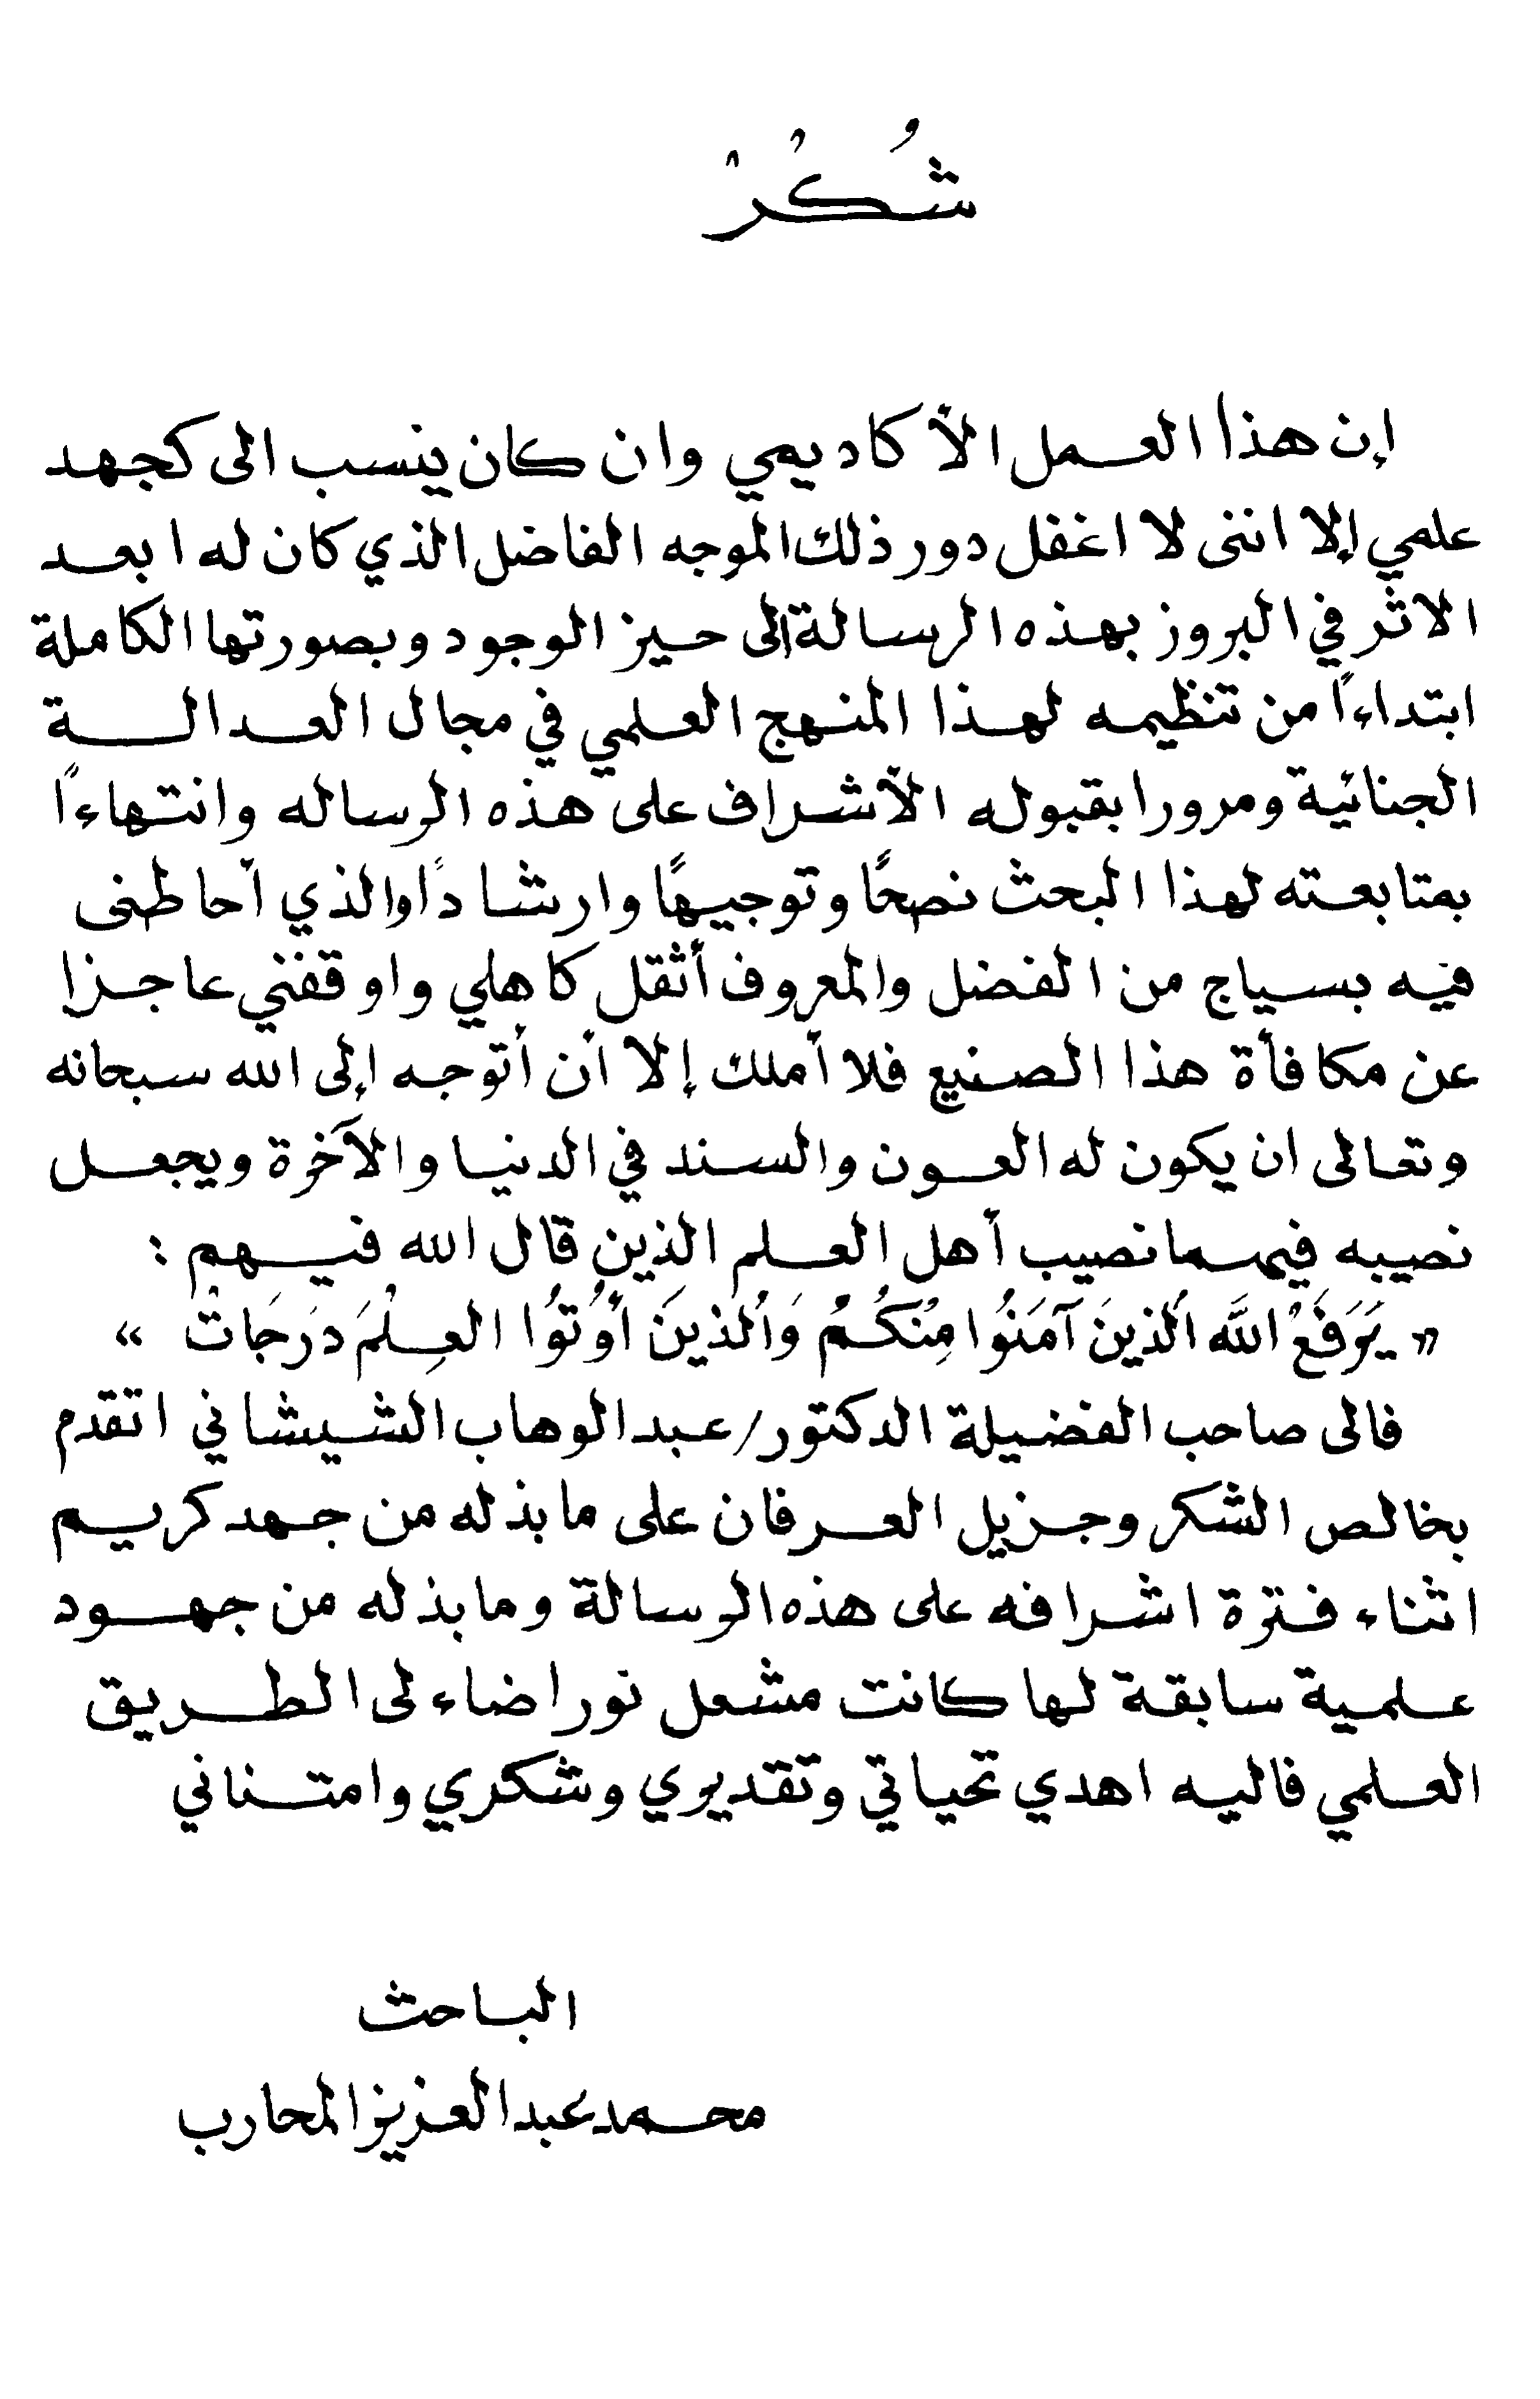 شُكْرْ
إن هذا العمل الأكاديمي وان كان ينسب الى كجهد
علمي إلا اننى لا اغفل دور ذلك الموجه الفاضل الذي كان له ابعد
الاثر في البروز بهذه الرسالة إلى حيز الوجود وبصورتها الكاملة
ابتداءاً من تنظيمه لهذا المنهج العلمي في مجال العدالة
الجنائية ومرورا بقبوله الأشراف على هذه الرساله وانتهاءاً
بمتابعته لهذا البحث نصحًا وتوجيهًا وارشاداً والذي أحاطنى
فيه بسياج من الفضل والمعروف أثقل كاهلي واوقفني عاجزا
عن مكافأة هذا الصنيع فلا أملك إلا أن أتوجه إلى الله سبحانه
وتعالى ان يكون له العون والسند في الدنيا والآخرة ويجعل
نصيبه فيهما نصيب أهل العلم الذين قال الله فيهم :
« يَرَفَعْ اللَّه اَلذينَ آمَنُوا مِنْكُمُ وَاُلذينَ أوُتوُا العِلْمَ دَرَجَاتْ »
فالى صاحب الفضيلة الدكتور/عبد الوهاب الشيشاني اتقدم
بخالص الشكر وجزيل العرفان على ما بذله من جهد كريم
اثناء فترة اشرافه على هذه الرسالة وما بذله من جهود
علمية سابقة لها كانت مشعل نور اضاء لى الطريق
العلمي فاليه اهدي تحياتي وتقديري وشكري وامتناني
الباحث
محمد عبد العزيز المحارب